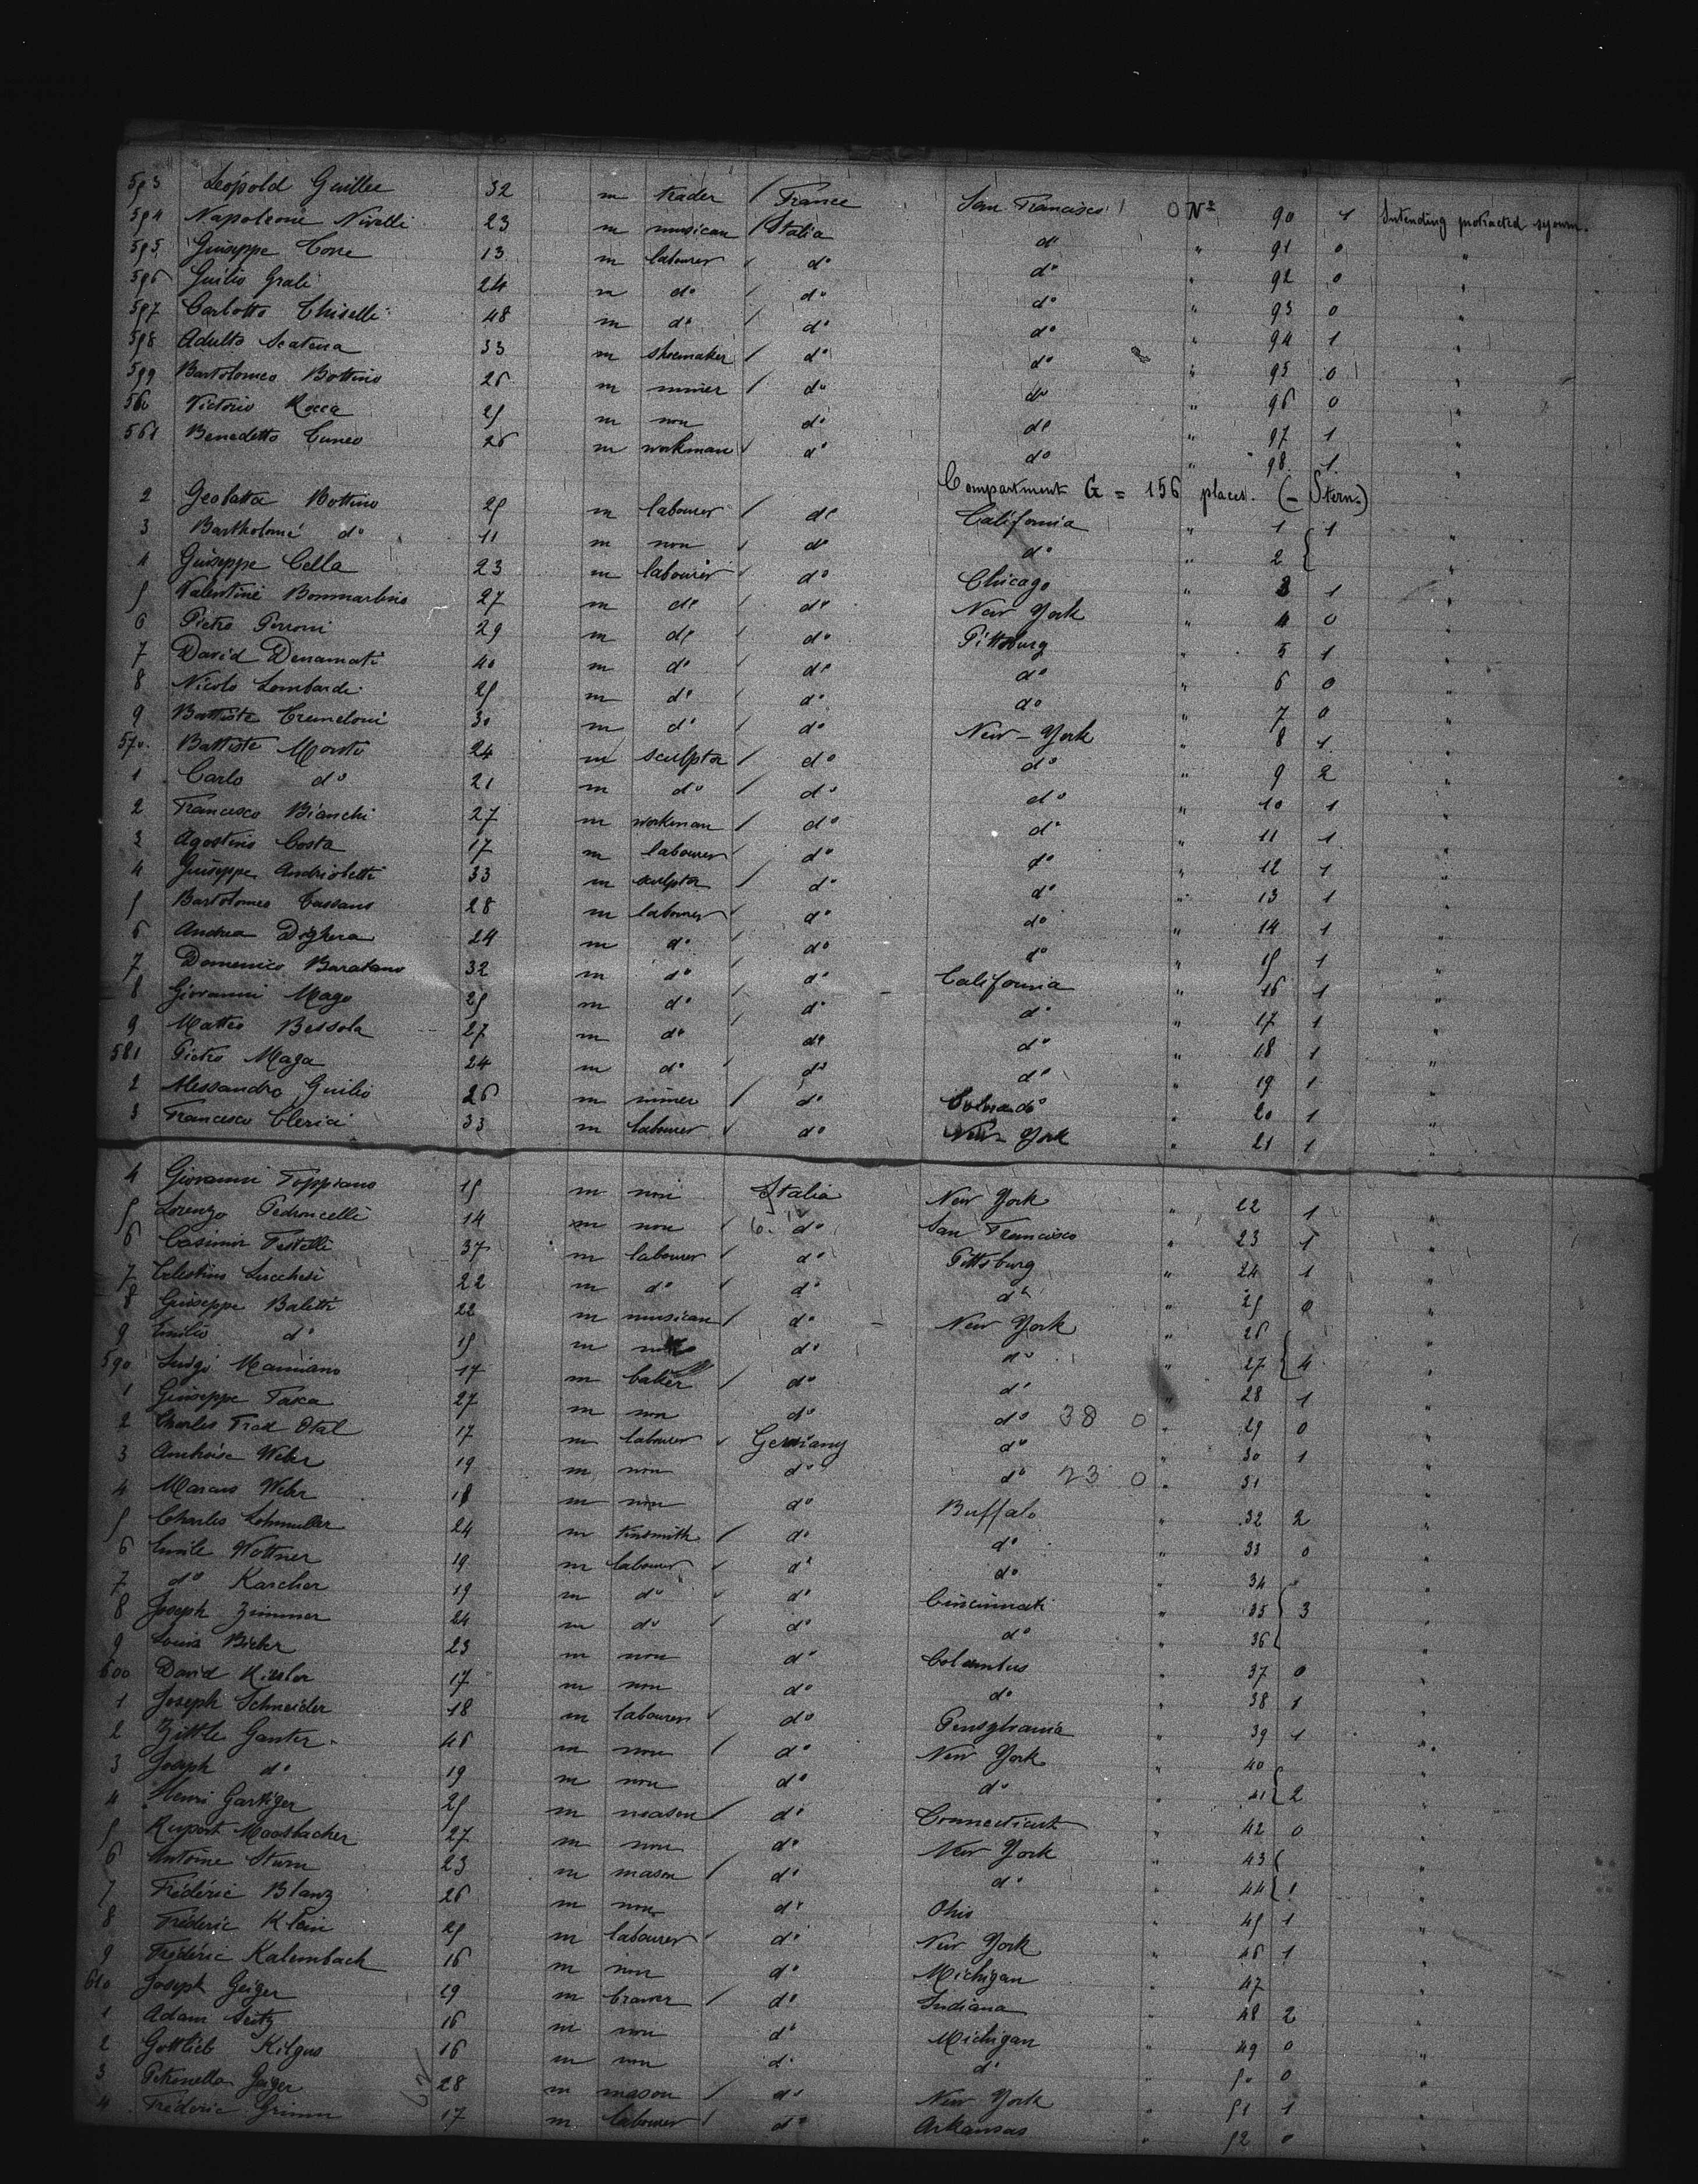 593 Leopold Guillee 32 m trader / France San Francisco 0 Nº 90 1 Intending protracted sejourn.
594 Napoleone Nivelli 23 m musican / Italia dº " 91 0 "
595 Guiseppe Torre 13 m labourer dº dº " 92 0 "
596 Guilio Grali 24 m dº / dº dº " 93 0 "
597 Carlotto Chiselli 48 m dº / dº dº " 94 1 "
598 Adulto Scatena 33 m shoemaker / dº dº " 95 0 "
599 Bartolomeo Bottino 26 m miner / dº do " 96 0 "
560 Victorio Rocca 25 m non dº dº " 97 1 "
561 Benedetto Cuneo 26 m workman dº do " 98 1 "
Compartment G = 156 places. (- Stern.)
2 Geobatta Bottino 25 m labourer / dº California " 1 1 "
3 Bartholomé dº 11 m non dº dº " 2
4 Guiseppe Cella 23 m labourer dº Chicago " 3 1 "
5 Valentine Bommarbrio 27 m dº / dº New York " 4 0 "
6 Pietro Perroni 29 m dº / dº Pittsburg " 5 1 "
7 David Denamati 40 m dº / dº dº " 6 0 "
8 Nicolo Lombardi 25 m dº / dº do " 7 0 "
9 Battista Cremeloni 30 m dº / dº New-York " 8 1 "
570. Battiste Monto 24 m sculptor / dº dº " 9 2 "
1 Carlo dº 21 m dº / dº dº " 10 1 "
2 Francesco Bianchi 27 m workman / dº dº " 11 1 "
3 Agostino Costa 17 m labourer dº dº " 12 1 "
4 Guiseppe Andriobetti 33 m sculptor / dº dº " 13 1 "
5 Bartolomeo Cassano 28 m labourer dº dº " 14 1 "
6 Andrea Dighera 24 m dº / dº dº " 15 1 "
7 Domenico Baratano 32 m dº / dº California " 16 1 "
8 Giovanni Mago 25 m dº / dº dº " 17 1 "
9 Matteo Bessola 27 m dº dº dº " 18 1 "
581 Pietro Maga 24 m dº dº dº " 19 1 "
2 Alessandro Guilio 26 m miner / dº Colorado " 20 1 "
3 Francesco Clerici 33 m labourer dº New-York " 21 1 "
4 Giovanni Foppiano 15 m non Italia New York " 22 1 "
5 Lorenzo Pedroncelli 14 m non dº San Francisco " 23 1 "
6 Casimir Testelli 37 m labourer dº Pittsburg " 24 1 "
7 Celestino Lucchesi 22 m dº dº dº " 25 0 "
8 Guiseppe Baletti 22 m musican / dº New York " 26
9 Emilio dº 15 m dº dº " 27 4 "
590 Luigi Mamiano 17 m baker / dº dº " 28 1 "
1 Guiseppe Tasca 27 m non dº dº 38 0 " 29 0 "
2 Charles Fred Otal 17 m labourer Germany dº " 30 1 "
3 Ambroise Weber 19 m non dº dº 23 0 " 31
4 Marcus Weber 18 m non dº Buffalo " 32 2 "
5 Charles Lohmuller 24 m tinsmith / dº dº " 33 0 "
6 Emile Wottner 19 m labourer dº do " 34
7 dº Karcher 19 m dº dº Cincinnati " 35 3 "
8 Joseph Zimmer 24 m do dº dº " 36
9 Louis Bieber 23 m non dº Columbus " 37 0 "
600 David Kissler 17 m non dº dº " 38 1 "
1 Joseph Schneider 18 m labourer dº Pensylvania " 39 1 "
2 Zittle Ganter 46 m non / dº New York " 40
3 Joseph dº 19 m non dº dº " 41 2 "
4 Henri Gartiger 25 m mason / dº Connecticut " 42 0 "
5 Rupert Moosbacher 27 m non dº New York " 43
6 Antoine Sturn 23 m mason / dº dº " 44 1 "
7 Frédéric Blanz 26 m non dº Ohio " 45 1 "
8 Frédéric Klein 25 m labourer dº New York " 46 1 "
9 Frédéric Kalembach 16 m non dº Michigan " 47
610 Joseph Geiger 29 m brewer / dº Indiana " 48 2 "
1 Adam Seitz 16 m non dº Michigan " 49 0 "
2 Gottlieb Kilgus 16 m non dº dº " 50 0 "
3 Petronella Geiger 28 m mason / dº New York " 51 1 "
4 Frédéric Grimm 17 m labourer dº Arkansas " 52 0 "